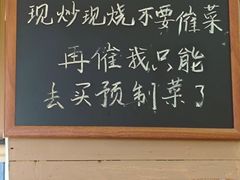 现炒现烧不要催菜
再催我只能
去买预制菜了